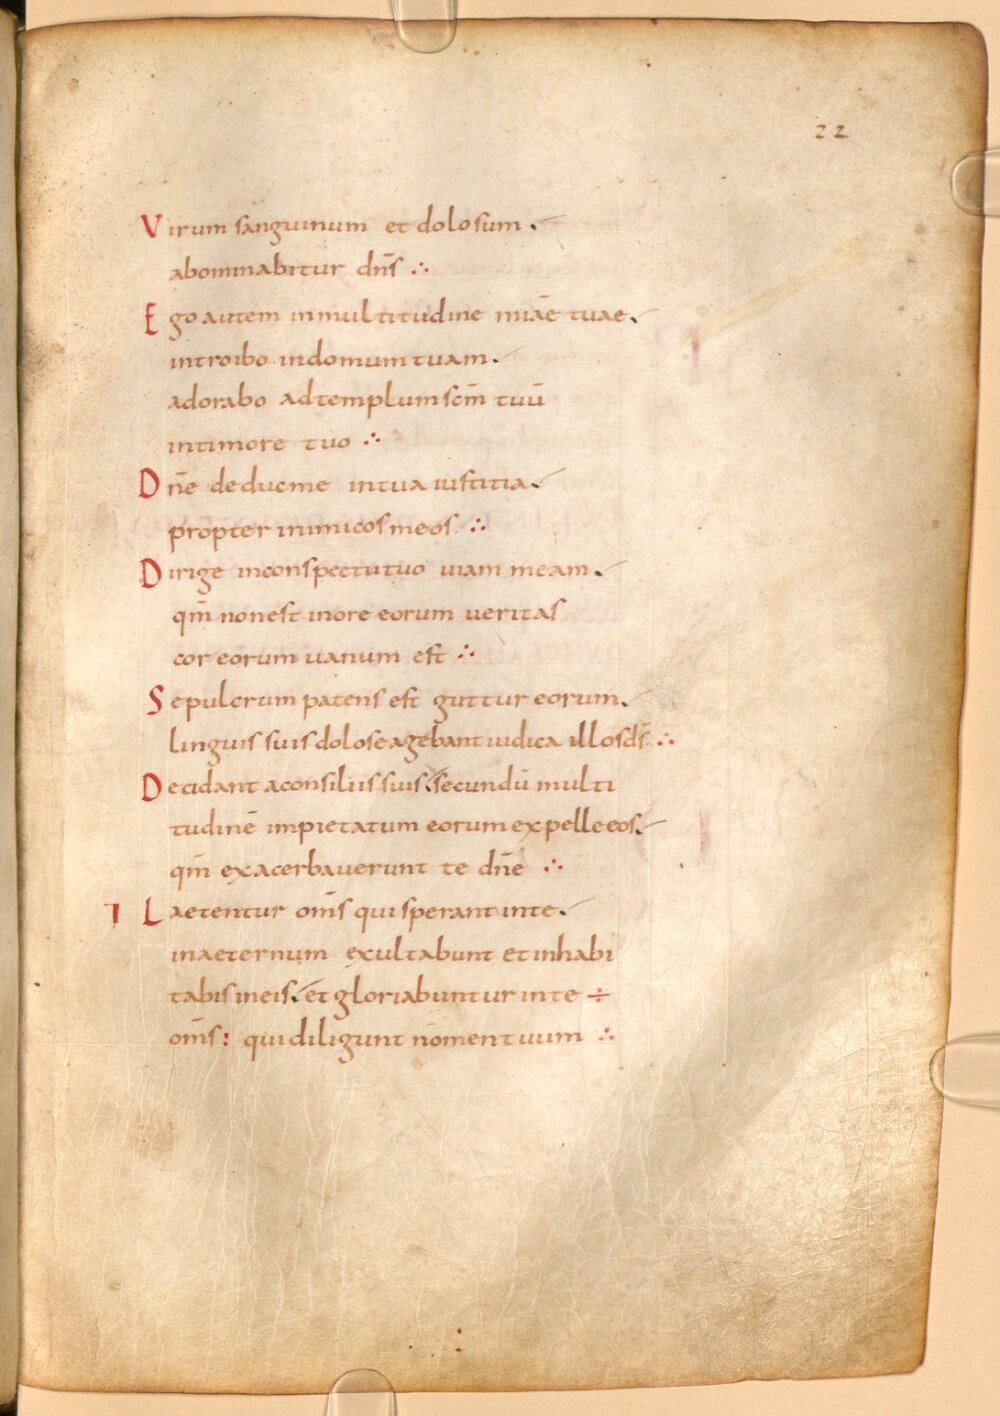 22
Virum sanguinum et dolosum.
abominabitur dn̄s ∴
Ego autem inmultitudine miāe tuae.
introibo indomum tuam.
adorabo adtemplum sc̄m tuū
intimore tuo ∴
Dn̄e deducme intua iustitia.
propter inimicos meos ∴
Dirige inconspectu tuo uiam meam.
qm̄ nonest inore eorum veritas
cor eorum uanum est ∴
Sepulcrum patens est guttur eorum.
linguis suis dolose agebant iudica illos ds̄ ∴
Decidant aconsiliis suis. secundū multi
tudinē impietatum eorum expelle eos.
qm̄ exacerbauerunt te dn̄e ∴
⁊ Laetentur om̄s qui sperant inte.
inaeternum exultabunt et inhabi
tabis ineis. et gloriabuntur inte ÷
om̄s: qui diligunt nomen tuum ∴